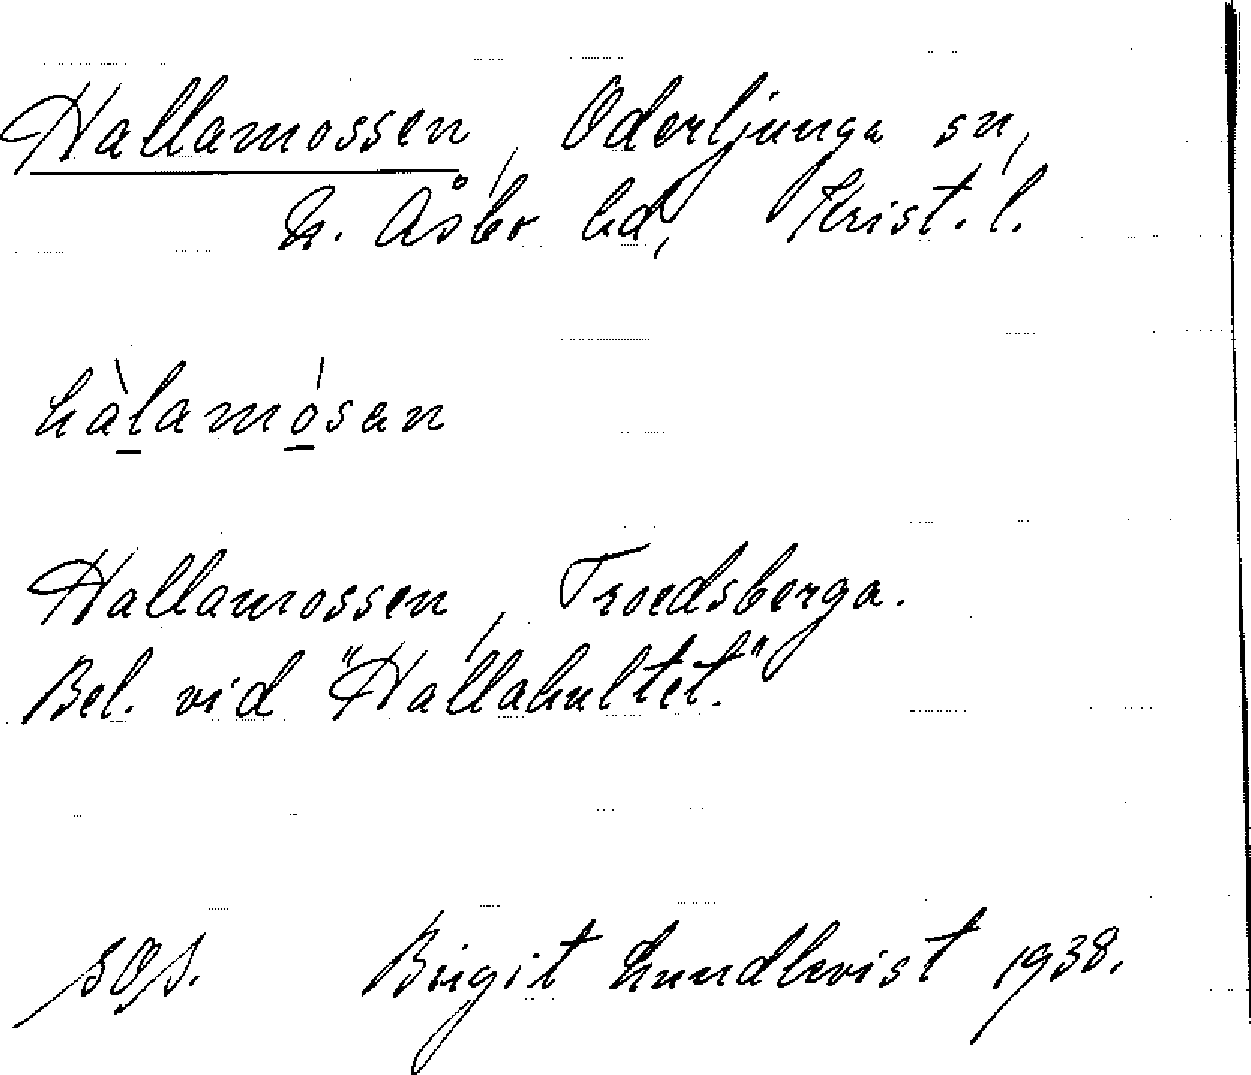 Hallamossen, Oderljunga sn,
N. Åsbo hd, Krist. l.
hàlamósan
Hallamossen, Troedsberga.
Bel. vid "Hallahultet."
sOs. Birgit Lundkvist 1938.